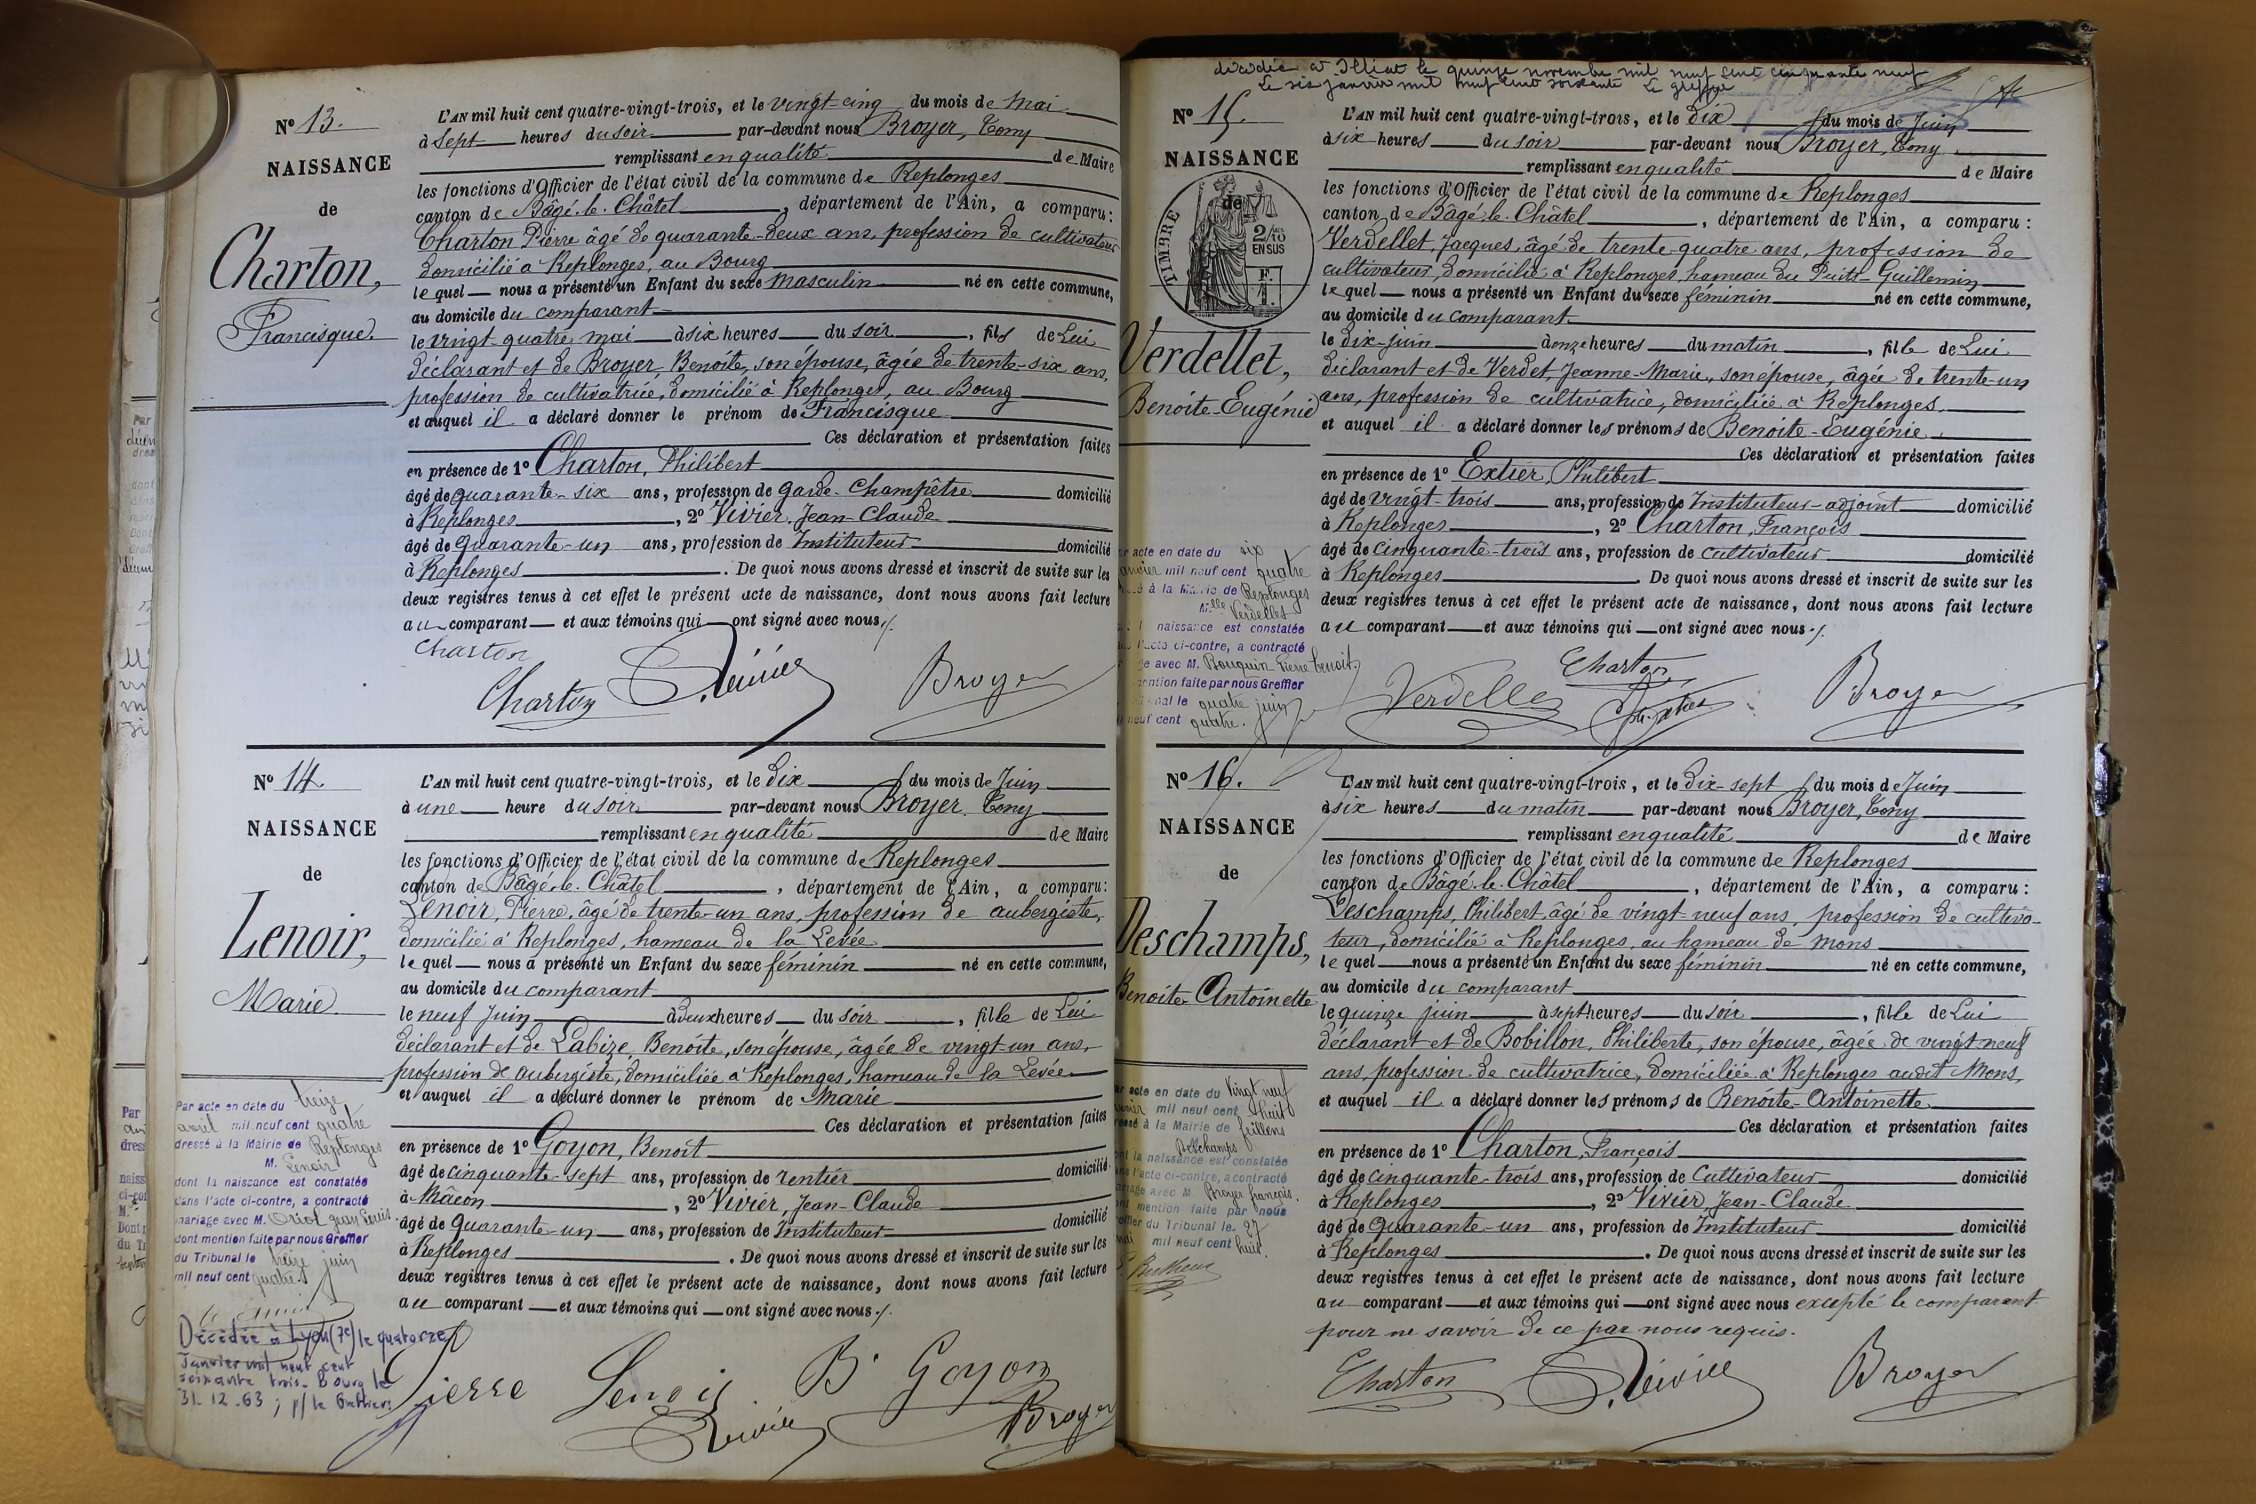 Nº 13.
NAISSANCE
de
Charton,
Francisque.
L'AN mil huit cent quatre-vingt-trois, et le vingt-cinq du mois de Mai
à sept heures du soir par-devant nous Broyer, Tony
remplissant en qualité de Maire
les fonctions d'Officier de l'état civil de la commune de Replonges
canton de Bâgé-le-Châtel, département de l'Ain, a comparu :
Charton Pierre âgé de quarante-deux ans, profession de cultivateur
domicilié à Replonges, au Bourg
lequel nous a présenté un Enfant du sexe masculin né en cette commune,
au domicile du comparant
le vingt-quatre mai à six heures du soir, fils de Lui
déclarant et de Broyer, Benoîte, son épouse, âgée de trente-six ans,
profession de cultivatrice, domicilié à Replonges, au Bourg
et auquel il a déclaré donner le prénom de Francisque
Ces déclaration et présentation faites
en présence de 1º Charton, Philibert
âgé de quarante-six ans, profession de Garde-Champêtre domicilié
à Replonges, 2º Vivier, Jean-Claude
âgé de quarante-un ans, profession de Instituteur domicilié
à Replonges. De quoi nous avons dressé et inscrit de suite sur les
deux registres tenus à cet effet le présent acte de naissance, dont nous avons fait lecture
au comparant et aux témoins qui ont signé avec nous./.
Charton
Charton Vivier Broyer
Nº 14.
NAISSANCE
de
Lenoir,
Marie.
L'AN mil huit cent quatre-vingt-trois, et le dix du mois de Juin
à une heure du soir par-devant nous Broyer, Tony
remplissant en qualité de Maire
les fonctions d'Officier de l'état civil de la commune de Replonges
canton de Bâgé-le-Châtel, département de l'Ain, a comparu :
Lenoir, Pierre, âgé de trente-un ans, profession de aubergiste,
domicilié à Replonges, hameau de la Levée
lequel nous a présenté un Enfant du sexe féminin né en cette commune,
au domicile du comparant
le neuf Juin à deux heures du soir, fille de Lui
déclarant et de Labize, Benoîte, son épouse, âgée de vingt-un ans,
profession de aubergiste, domiciliée à Replonges, hameau de la Levée
et auquel il a déclaré donner le prénom de Marie
Ces déclaration et présentation faites
en présence de 1º Goyon, Benoît
âgé de cinquante-sept ans, profession de rentier domicilié
à Mâcon, 2º Vivier, Jean-Claude
âgé de quarante-un ans, profession de Instituteur domicilié
à Replonges. De quoi nous avons dressé et inscrit de suite sur les
deux registres tenus à cet effet le présent acte de naissance, dont nous avons fait lecture
au comparant et aux témoins qui ont signé avec nous./.
Pierre Lenoir B. Goyon
Vivier Broyer
Par acte en date du treize
avril mil neuf cent quatre
dressé à la Mairie de Replonges
M. Lenoir
dont la naissance est constatée
dans l'acte ci-contre, a contracté
mariage avec M. Oriol Jean Louis
dont mention faite par nous Greffier
du Tribunal le treize juin
mil neuf cent quatre.
Décédée à Lyon (7e) le quatorze
Janvier mil neuf cent
soixante trois. Bourg le
31.12.63 ; p/ le Greffier
décédée à Illiat le quinze novembre mil neuf cent cinquante neuf
Le six janvier mil neuf cent soixante Le greffier
Nº 15.
NAISSANCE
de
TIMBRE
2/10
EN SUS
F.
1.
Verdellet,
Benoîte-Eugénie
L'AN mil huit cent quatre-vingt-trois, et le dix du mois de Juin
à six heures du soir par-devant nous Broyer, Tony
remplissant en qualité de Maire
les fonctions d'Officier de l'état civil de la commune de Replonges
canton de Bâgé-le-Châtel, département de l'Ain, a comparu :
Verdellet, Jacques, âgé de trente-quatre ans, profession de
cultivateur, domicilié à Replonges, hameau du Puits-Guillemin
lequel nous a présenté un Enfant du sexe féminin né en cette commune,
au domicile du comparant
le dix-juin à onze heures du matin, fille de Lui
déclarant et de Verdet, Jeanne-Marie, son épouse, âgée de trente-un
ans, profession de cultivatrice, domiciliée à Replonges.
et auquel il a déclaré donner les prénoms de Benoîte-Eugénie.
Ces déclaration et présentation faites
en présence de 1º Extier, Philibert
âgé de vingt-trois ans, profession de Instituteur-adjoint domicilié
à Replonges, 2º Charton, François
âgé de cinquante-trois ans, profession de cultivateur domicilié
à Replonges. De quoi nous avons dressé et inscrit de suite sur les
deux registres tenus à cet effet le présent acte de naissance, dont nous avons fait lecture
au comparant et aux témoins qui ont signé avec nous./.
Charton
Verdellet Broyer
acte en date du six
janvier mil neuf cent quatre
à la Mairie de Replonges
Mlle Verdellet
naissance est constatée
l'acte ci-contre, a contracté
avec M. Bouquin Pierre benoit.
mention faite par nous Greffier
le quatre juin
neuf cent quatre.
Nº 16.
NAISSANCE
de
Deschamps,
Benoîte-Antoinette
L'AN mil huit cent quatre-vingt-trois, et le dix-sept du mois de Juin
à six heures du matin par-devant nous Broyer, Tony
remplissant en qualité de Maire
les fonctions d'Officier de l'état civil de la commune de Replonges
canton de Bâgé-le-Châtel, département de l'Ain, a comparu :
Deschamps, Philibert, âgé de vingt-neuf ans, profession de cultiva-
teur, domicilié à Replonges, au hameau de Mons
lequel nous a présenté un Enfant du sexe féminin né en cette commune,
au domicile du comparant
le quinze juin à sept heures du soir, fille de Lui
déclarant et de Bobillon, Philiberte, son épouse, âgée de vingt neuf
ans, profession de cultivatrice, domiciliée à Replonges audit Mons,
et auquel il a déclaré donner les prénoms de Benoîte-Antoinette
Ces déclaration et présentation faites
en présence de 1º Charton, François
âgé de cinquante-trois ans, profession de Cultivateur domicilié
à Replonges, 2º Vivier, Jean-Claude
âgé de quarante-un ans, profession de Instituteur domicilié
à Replonges. De quoi nous avons dressé et inscrit de suite sur les
deux registres tenus à cet effet le présent acte de naissance, dont nous avons fait lecture
au comparant et aux témoins qui ont signé avec nous excepté le comparant
pour ne savoir de ce par nous requis.
Charton Vivier Broyer
acte en date du vingt neuf
mil neuf cent huit
à la Mairie de feillens
Deschamps
la naissance est constatée
l'acte ci-contre, a contracté
mariage avec M. Broyer françois.
mention faite par nous
du Tribunal le 27
mil neuf cent huit.